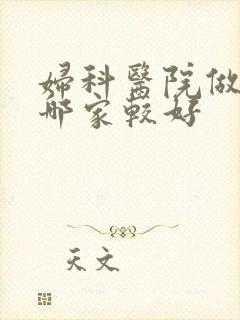 婦科醫院做
哪家較好
天文